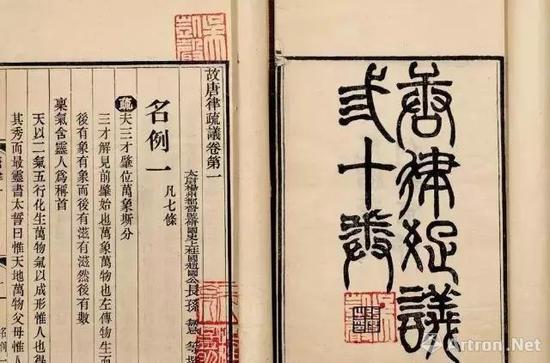 唐律疏議
弎十卷
故唐律疏議卷第一
太尉揚州都督監修國史上柱國趙國公長孫無忌等
名例一 凡七條
疏夫三才肇位萬象斯分
三才解見前肇始也萬象萬物也左傳物生而
後有象有象而後有滋有滋然後有數
稟氣含靈人爲稱首
天以二氣五行化生萬物氣以成形惟人也得
其秀而最靈書太誓曰惟天地萬物父母惟人
名例一
Artron.Net